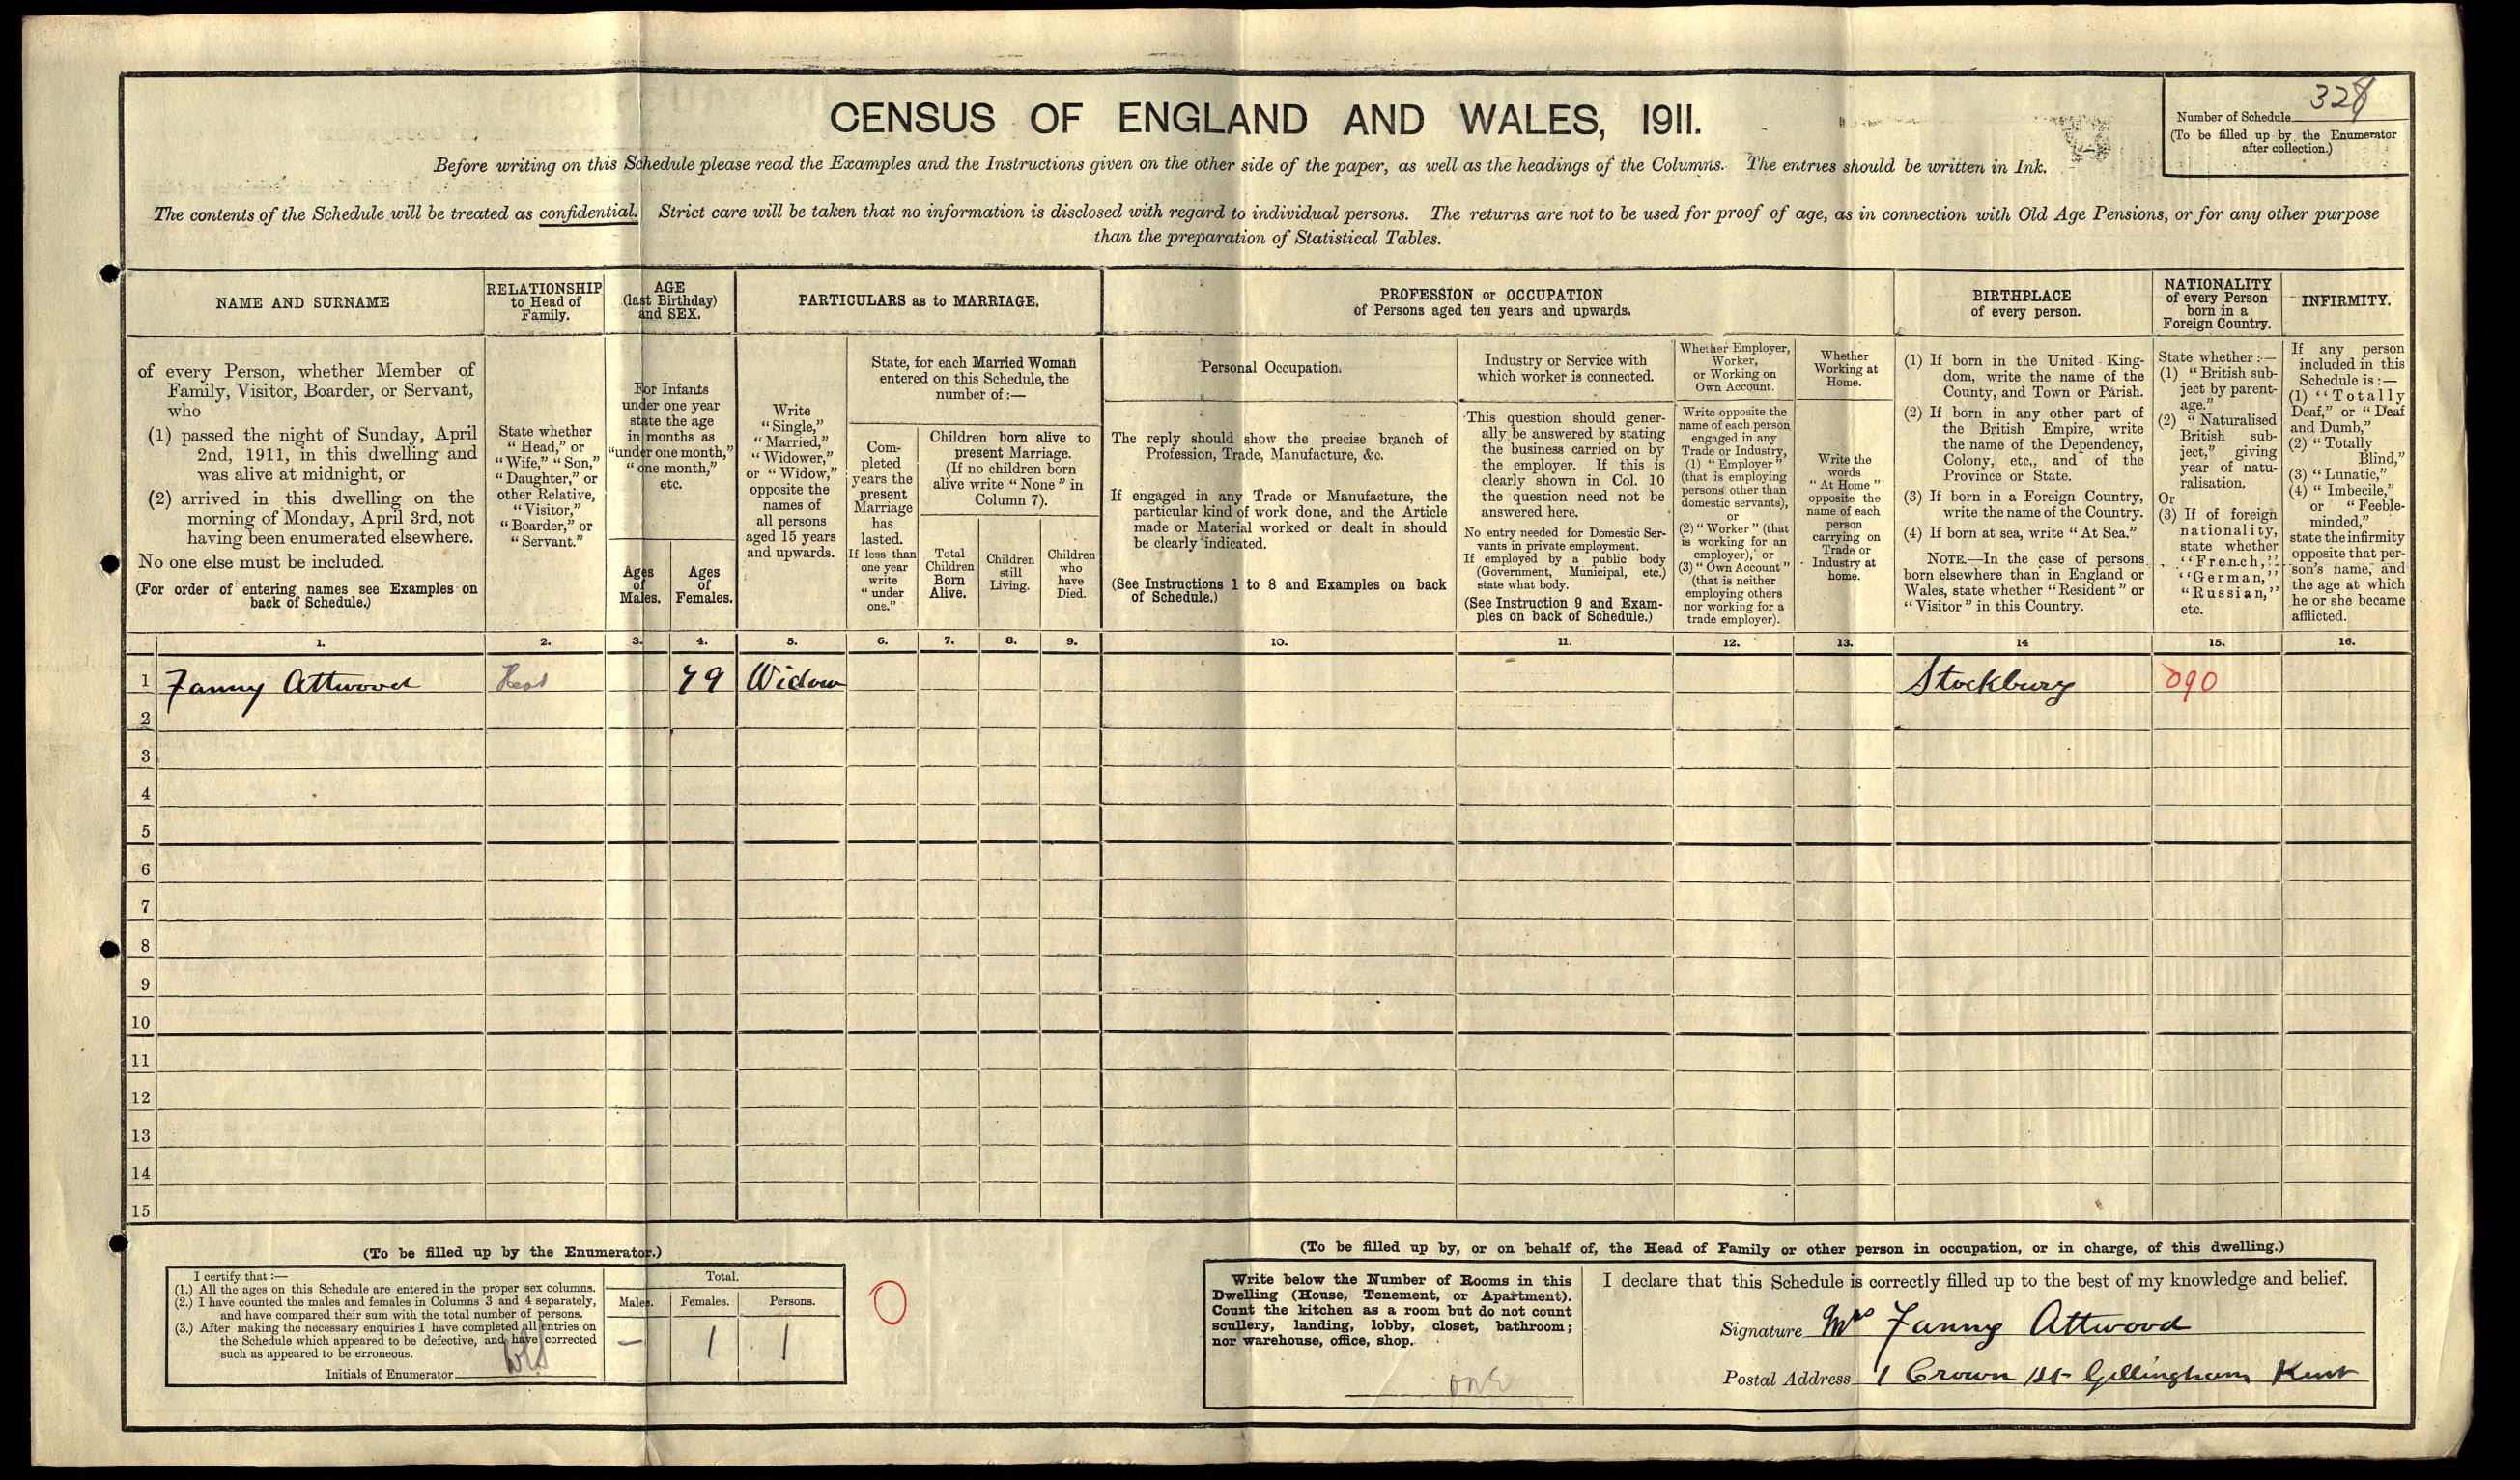 CENSUS OF ENGLAND AND WALES, 1911.
Number of Schedule 328
(To be filled up by the Enumerator
after collection.)
Before writing on this Schedule please read the Examples and the Instructions given on the other side of the paper, as well as the headings of the Columns. The entries should be written in Ink.
The contents of the Schedule will be treated as confidential. Strict care will be taken that no information is disclosed with regard to individual persons. The returns are not to be used for proof of age, as in connection with Old Age Pensions, or for any other purpose
than the preparation of Statistical Tables.
NAME AND SURNAME
of every Person, whether Member of
Family, Visitor, Boarder, or Servant,
who
(1) passed the night of Sunday, April
2nd, 1911, in this dwelling and
was alive at midnight, or
(2) arrived in this dwelling on the
morning of Monday, April 3rd, not
having been enumerated elsewhere.
No one else must be included.
(For order of entering names see Examples on
back of Schedule.)
RELATIONSHIP
to Head of
Family.
State whether
"Head," or
"Wife," "Son,"
"Daughter," or
other Relative,
"Visitor,"
"Boarder," or
"Servant."
AGE
(last Birthday)
and SEX.
For Infants
under one year
state the age
in months as
"under one month,"
"one month,"
etc.
Ages
of
Males.
Ages
of
Females.
PARTICULARS as to MARRIAGE.
Write
"Single,"
"Married,"
"Widower,"
or "Widow,"
opposite the
names of
all persons
aged 15 years
and upwards.
State, for each Married Woman
entered on this Schedule, the
number of:—
Com-
pleted
years the
present
Marriage
has
lasted.
If less than
one year
write
"under
one."
Children born alive to
present Marriage.
(If no children born
alive write "None" in
Column 7).
Total
Children
Born
Alive.
Children
still
Living.
Children
who
have
Died.
PROFESSION or OCCUPATION
of Persons aged ten years and upwards.
Personal Occupation.
The reply should show the precise branch of
Profession, Trade, Manufacture, &c.
If engaged in any Trade or Manufacture, the
particular kind of work done, and the Article
made or Material worked or dealt in should
be clearly indicated.
(See Instructions 1 to 8 and Examples on back
of Schedule.)
Industry or Service with
which worker is connected.
This question should gener-
ally be answered by stating
the business carried on by
the employer. If this is
clearly shown in Col. 10
the question need not be
answered here.
No entry needed for Domestic Ser-
vants in private employment.
If employed by a public body
(Government, Municipal, etc.)
state what body.
(See Instruction 9 and Exam-
ples on back of Schedule.)
Whether Employer,
Worker,
or Working on
Own Account.
Write opposite the
name of each person
engaged in any
Trade or Industry,
(1) "Employer"
(that is employing
persons other than
domestic servants),
or
(2) "Worker" (that
is working for an
employer), or
(3) "Own Account"
(that is neither
employing others
nor working for a
trade employer).
Whether
Working at
Home.
Write the
words
"At Home"
opposite the
name of each
person
carrying on
Trade or
Industry at
home.
BIRTHPLACE
of every person.
(1) If born in the United King-
dom, write the name of the
County, and Town or Parish.
(2) If born in any other part of
the British Empire, write
the name of the Dependency,
Colony, etc., and of the
Province or State.
(3) If born in a Foreign Country,
write the name of the Country.
(4) If born at sea, write "At Sea."
NOTE.—In the case of persons
born elsewhere than in England or
Wales, state whether "Resident" or
"Visitor" in this Country.
NATIONALITY
of every Person
born in a
Foreign Country.
State whether:—
(1) "British sub-
ject by parent-
age."
(2) "Naturalised
British sub-
ject," giving
year of natu-
ralisation.
Or
(3) If of foreign
nationality,
state whether
"French,"
"German,"
"Russian,"
etc.
INFIRMITY.
If any person
included in this
Schedule is:—
(1) "Totally
Deaf," or "Deaf
and Dumb,"
(2) "Totally
Blind,"
(3) "Lunatic,"
(4) "Imbecile,"
or "Feeble-
minded,"
state the infirmity
opposite that per-
son's name, and
the age at which
he or she became
afflicted.
1. 2. 3. 4. 5. 6. 7. 8. 9. 10. 11. 12. 13. 14 15. 16.
1 Fanny Attwood Head 79 Widow Stockbury 090
2
3
4
5
6
7
8
9
10
11
12
13
14
15
(To be filled up by the Enumerator.)
I certify that:—
(1.) All the ages on this Schedule are entered in the proper sex columns.
(2.) I have counted the males and females in Columns 3 and 4 separately,
and have compared their sum with the total number of persons.
(3.) After making the necessary enquiries I have completed all entries on
the Schedule which appeared to be defective, and have corrected
such as appeared to be erroneous.
Initials of Enumerator
Total.
Males. Females. Persons.
— 1 1
0
(To be filled up by, or on behalf of, the Head of Family or other person in occupation, or in charge, of this dwelling.)
Write below the Number of Rooms in this
Dwelling (House, Tenement, or Apartment).
Count the kitchen as a room but do not count
scullery, landing, lobby, closet, bathroom;
nor warehouse, office, shop.
one
I declare that this Schedule is correctly filled up to the best of my knowledge and belief.
Signature Mrs Fanny Attwood
Postal Address 1 Crown St Gillingham Kent